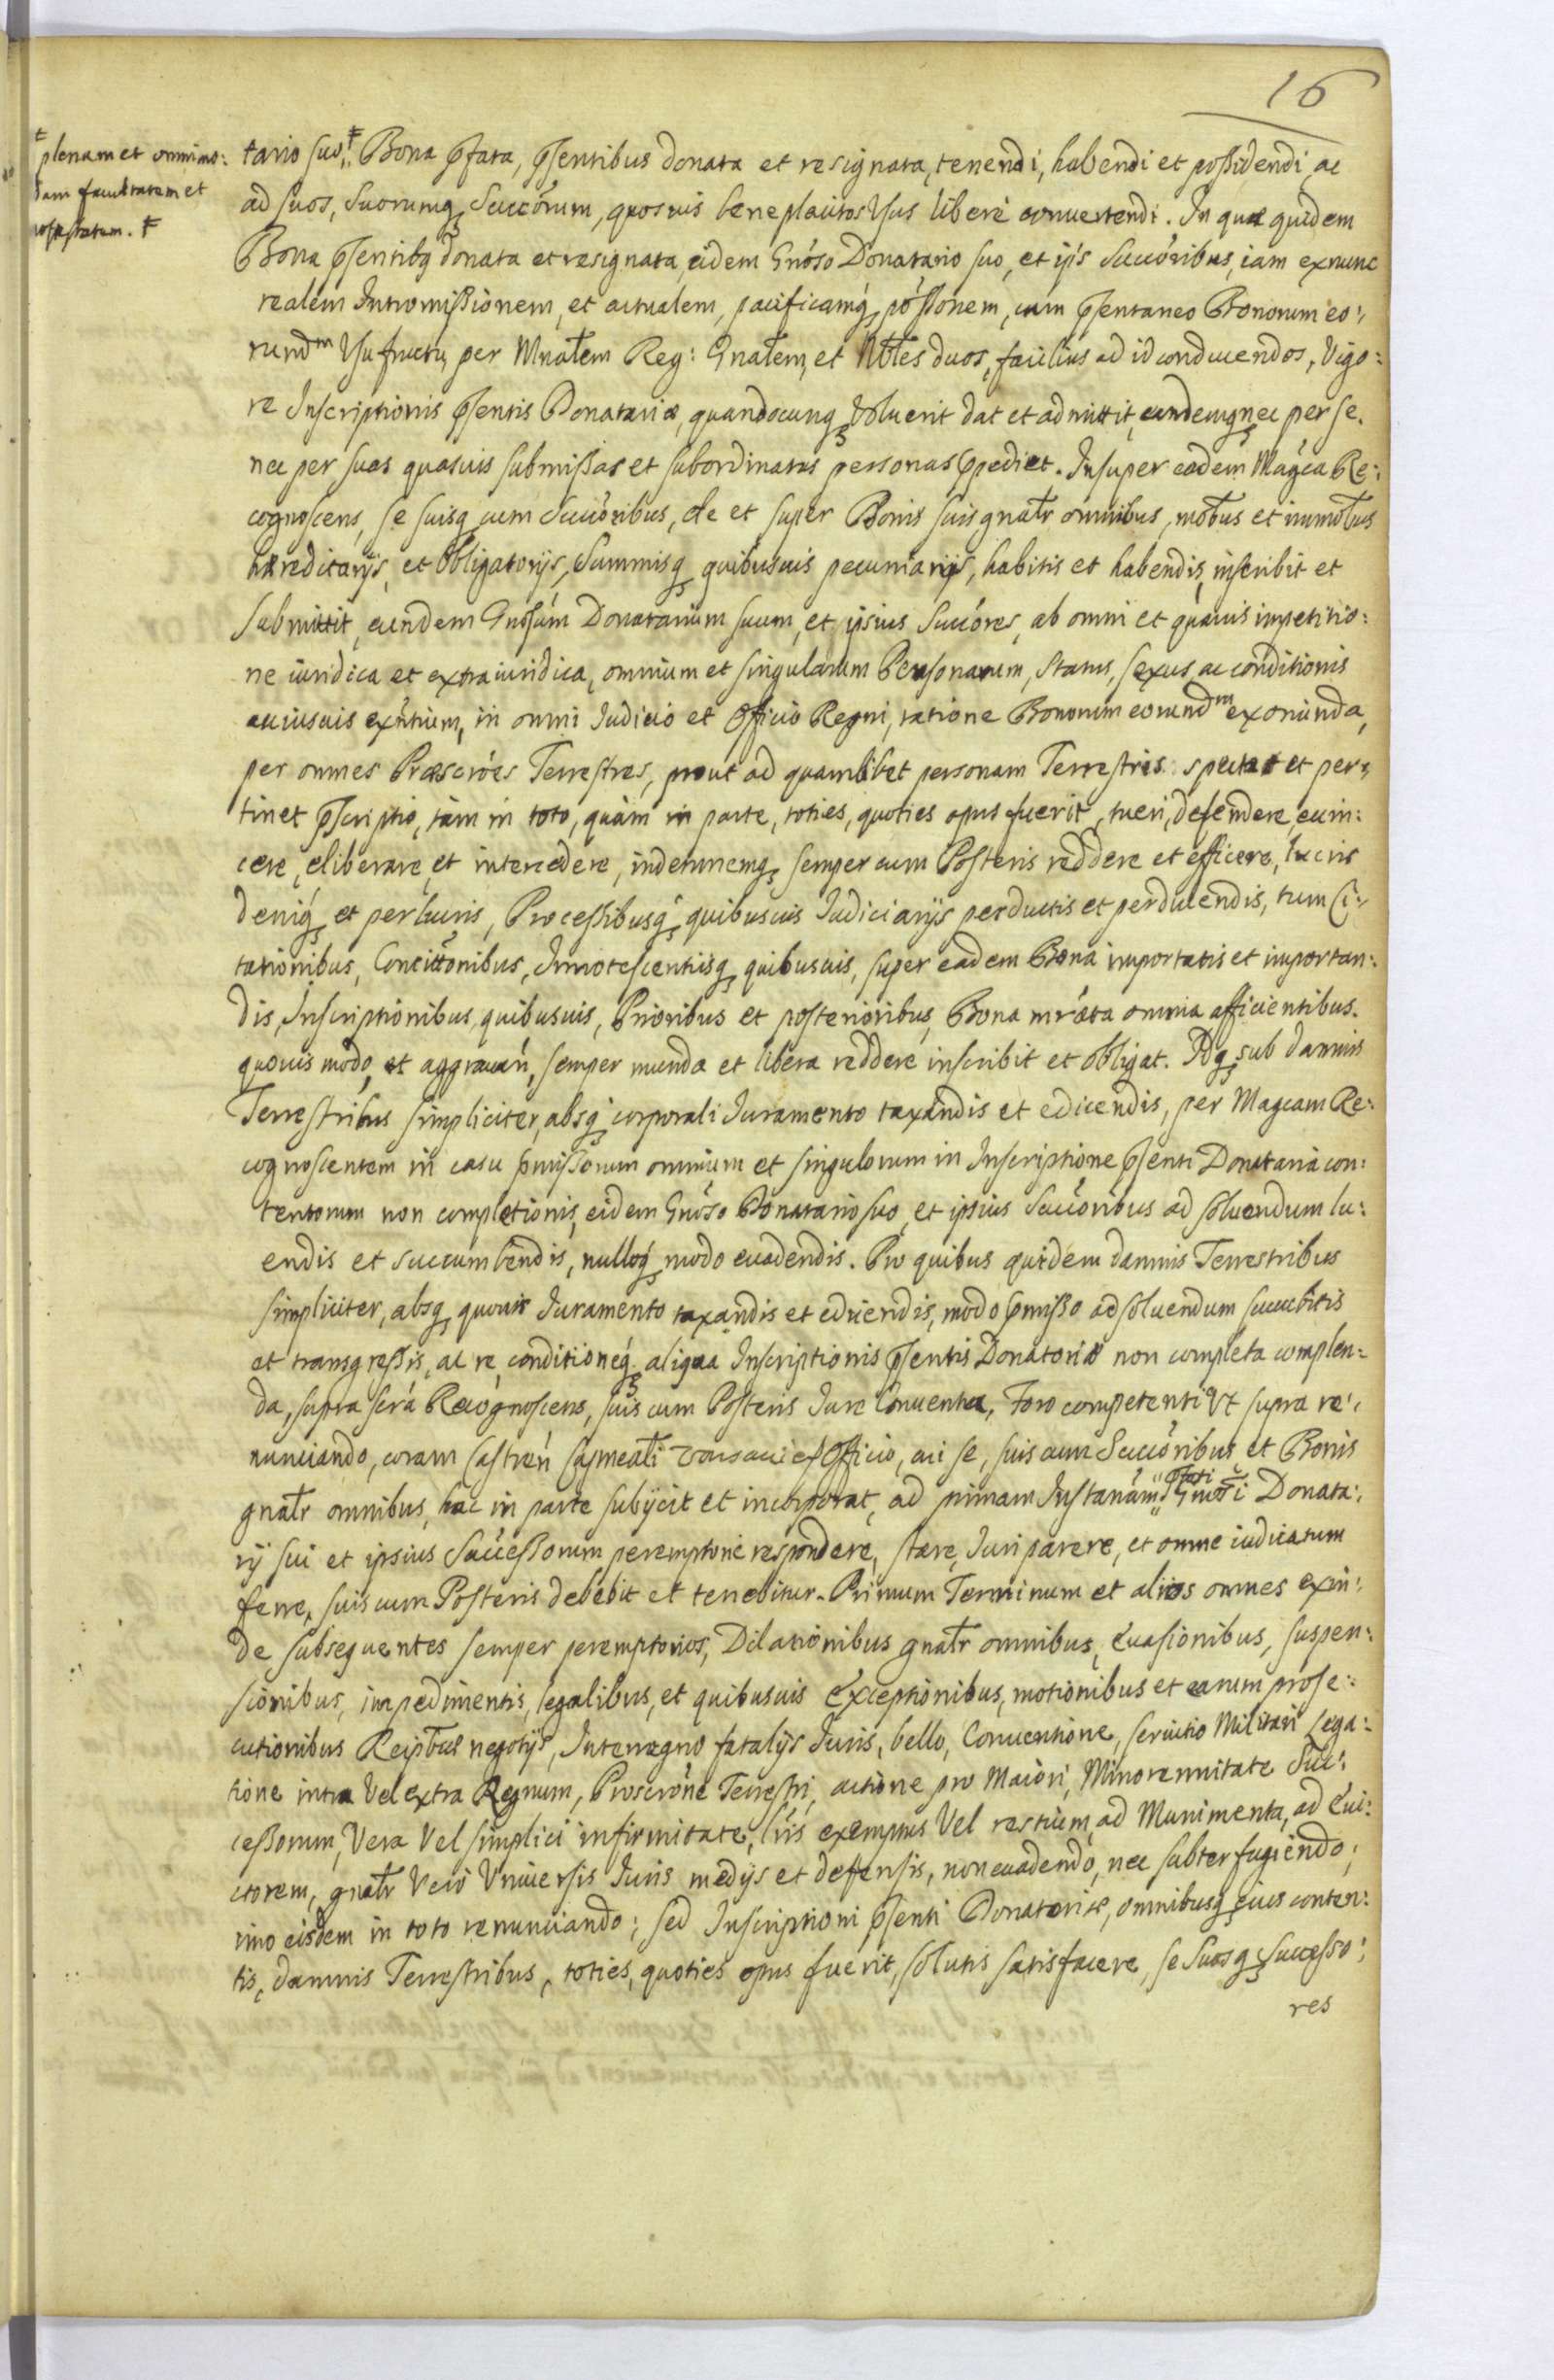 16
‡ plenam et omnimo:
dam facultatem et
potestatem. ‡
tario suo,‡ Bona pfata, psentibus donata et resignata, tenendi, habendi et possidendi, ac
ad suos, suorumq Succorum, quosuis beneplacitos Usus liberè conuertendi. In quæ quidem
Bona psentibq donata et resignata, eidem Gnoso Donatario suo, et ipsis Succoribus, iam exnunc
realem Intromissionem, et actualem, pacificamq possonem, cum psentaneo Bonorum eo:
rundm Usufructu, per Mnalem Reg: Gnalem, et Nbles duos, facilius ad id conducendos, Vigo:
re Inscriptionis psentis Donatariæ, quandocunq Voluerit dat et admittit, eundemq nec per se.
nec per suas quasuis submissas et subordinatas personas ppediet. Insuper eadem Magca Re:
cognoscens, se suisq cum Succoribus, de et super Bonis suis gnalr omnibus, mobus et immobus
hæreditarijs, et Obligatorijs, Summisq quibusuis pecuniarijs, habitis et habendis, inscribit et
submittit, eundem Gnosum Donatarium suum, et ipsius Succores, ab omni et quauis impetitio:
ne iuridica et extraiuridica, omnium et singularum Personarum, Status, sexus, ac conditionis
cuiusuis exntium, in omni Iudicio et Officio Regni, ratione Bonorum eorundm exoriunda,
per omnes Præscroes Terrestres, prout ad quamlibet personam Terrestris spectat et per:
tinet pscriptio, tàm in toto, quàm in parte, toties, quoties opus fuerit, tueri, defendere, euin:
cere, eliberare, et intercedere, indemnemq semper cum Posteris reddere et efficere, lucris
deniq et perlucris, Processibusq quibusuis Iudiciarijs perductis et perducendis, tum Ci:
tationibus, Concittonibus, Innotescentiisq quibusuis, super eadem Bona importatis et importan:
dis, Inscriptionibus, quibusuis, Prioribus et posterioribus, Bona mrata omnia afficientibus.
quouis modo, et aggrauan, semper munda et libera reddere inscribit et obligat. Idq sub damnis
Terrestribus simpliciter, absq corporali Iuramento taxandis et edicendis, per Magcam Re:
cognoscentem in casu pmissorum omnium et singulorum in Inscriptione psenti Donataria con:
tentorum non completionis, eidem Gnoso Donatario suo, et ipsius Succoribus ad soluendum lu:
endis et succumbendis, nulloq modo euadendis. Pro quibus quidem damnis Terrestribus
simpliciter, absq quouis Iuramento taxandis et edicendis, modo pmisso ad soluendum succubitis
et transgressis, ac re, conditioneq aliqua Inscriptionis psentis Donatoriæ non completa complen:
da, supra scra Recognoscens, suis cum Posteris Iure Conuenta, Foro competenti Ut supra re:
nunciando, coram Castren Capneali Varsauien Officio, cui se, suis cum Succoribus, et Bonis
gnalr omnibus, hac in parte subijcit et incorporat, ad primam Instanam " pfati " Gnosi Donata:
rij sui et ipsius Successorum peremptoriè respondere, stare, Iuri parere, et omne iudicatum
ferre, suis cum Posteris debebit et tenebitur. Primum Terminum et alios omnes exin:
de subsequentes semper peremptorios, Dilationibus gnalr omnibus, Euasionibus, suspen:
sionibus, impedimentis, legalibus, et quibusuis Exceptionibus, motionibus et earum prose:
cutionibus Reipblcæ negotijs, Interregno fatalijs Iuris, bello, Conuentione, seruitio Militari Lega:
tione intra Vel extra Regnum, Proscrone Terrestri, actione pro Maiori, Minorennitate Suc:
cessorum, Vera Vel simplici infirmitate, lris exemptus Vel restium, ad Munimenta, ad Eui:
ctorem, gnalr Verò Vniuersis Iuris medijs et defensis, non euadendo, nec subterfugiendo;
imo eisdem in toto renunciando; sed Inscriptioni psenti Donatoriæ, omnibusq eius conten:
tis, damnis Terrestribus, toties, quoties opus fuerit, solutis satisfacere, se Suosq successo:
res